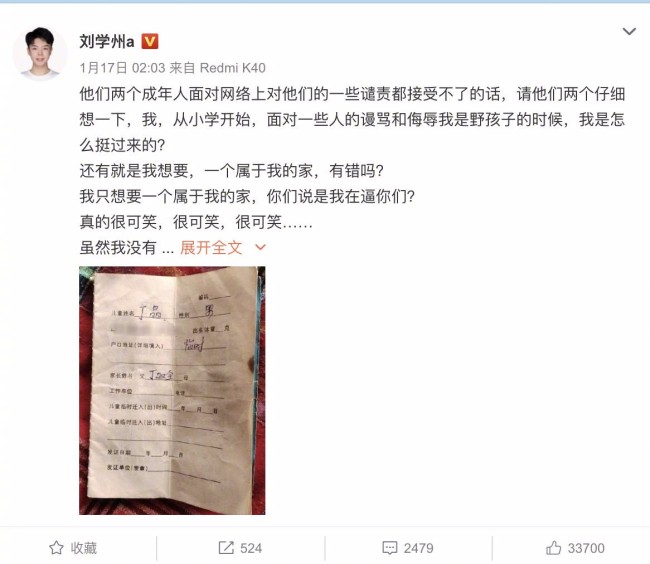 刘学州a
1月17日 02:03 来自 Redmi K40
他们两个成年人面对网络上对他们的一些谴责都接受不了的话，请他们两个仔细
想一下，我，从小学开始，面对一些人的谩骂和侮辱我是野孩子的时候，我是怎
么挺过来的?
还有就是我想要，一个属于我的家，有错吗?
我只想要一个属于我的家，你们说是我在逼你们?
真的很可笑，很可笑，很可笑……
虽然我没有 ... 展开全文
编号
儿童姓名 性别 男
出生体重 克
户口地址(详细填入)
家长姓名 父 丁 母
工作单位 电话
儿童临时迁入(出)时间 年 月 日
儿童临时迁入(出)地址
发证日期 年 月 日
发证单位(签章)
收藏
524
2479
33700